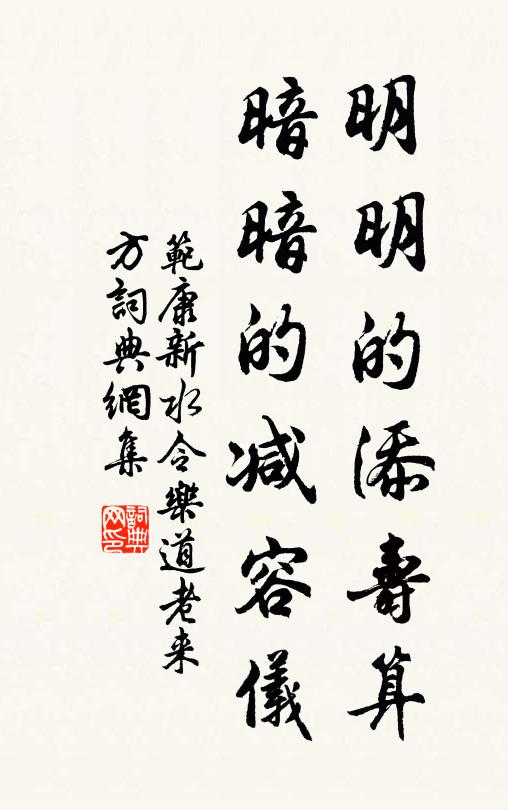 明明的添壽算
暗暗的减容儀
範康新水令樂道老来
方詞典網集
詞典
网印